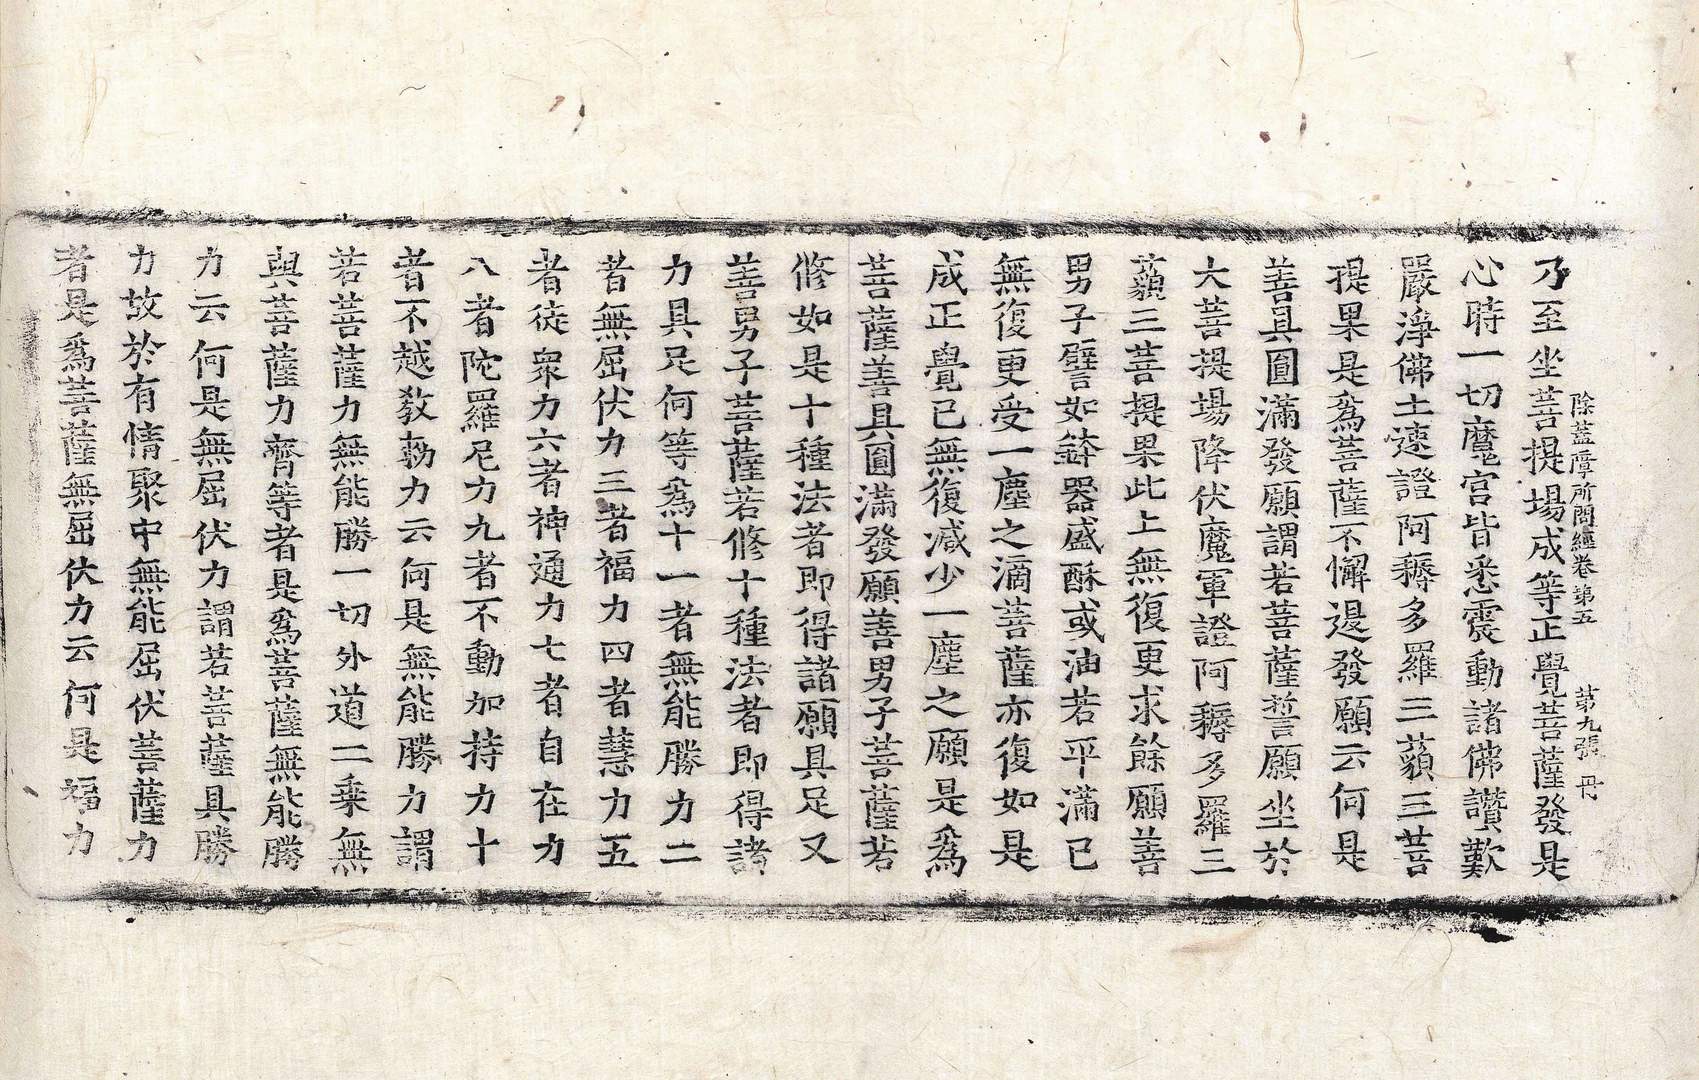 除蓋障所問經卷第五　第九張　冊
乃至坐菩提場成等正覺菩薩發是
心時一切魔宮皆悉震動諸佛讚歎
嚴淨佛土速證阿耨多羅三藐三菩
提果是爲菩薩不懈退發願云何是
善具圓滿發願謂若菩薩誓願坐於
大菩提場降伏魔軍證阿耨多羅三
藐三菩提果此上無復更求餘願善
男子譬如鉢器盛酥或油若平滿已
無復更受一塵之滴菩薩亦復如是
成正覺已無復減少一塵之願是爲
菩薩善具圓滿發願善男子菩薩若
修如是十種法者即得諸願具足又
善男子菩薩若修十種法者即得諸
力具足何等爲十一者無能勝力二
者無屈伏力三者福力四者慧力五
者徒衆力六者神通力七者自在力
八者陀羅尼力九者不動加持力十
者不越敎勑力云何是無能勝力謂
若菩薩力無能勝一切外道二乘無
與菩薩力齊等者是爲菩薩無能勝
力云何是無屈伏力謂若菩薩具勝
力故於有情聚中無能屈伏菩薩力
者是爲菩薩無屈伏力云何是福力